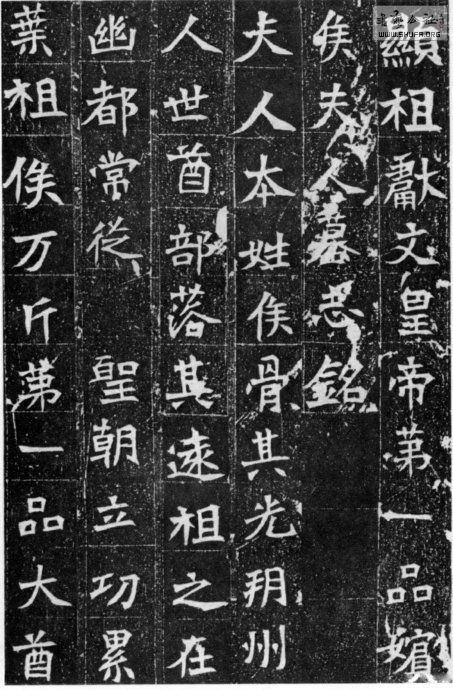 顯祖獻文皇帝苐一品嬪
侯夫人墓志銘
夫人本姓侯骨其先朔州
人世酋部落其遠祖之在
幽都常從 聖朝立功累
葉祖俟万斤苐一品大酋
WWW.SHUFA.ORG